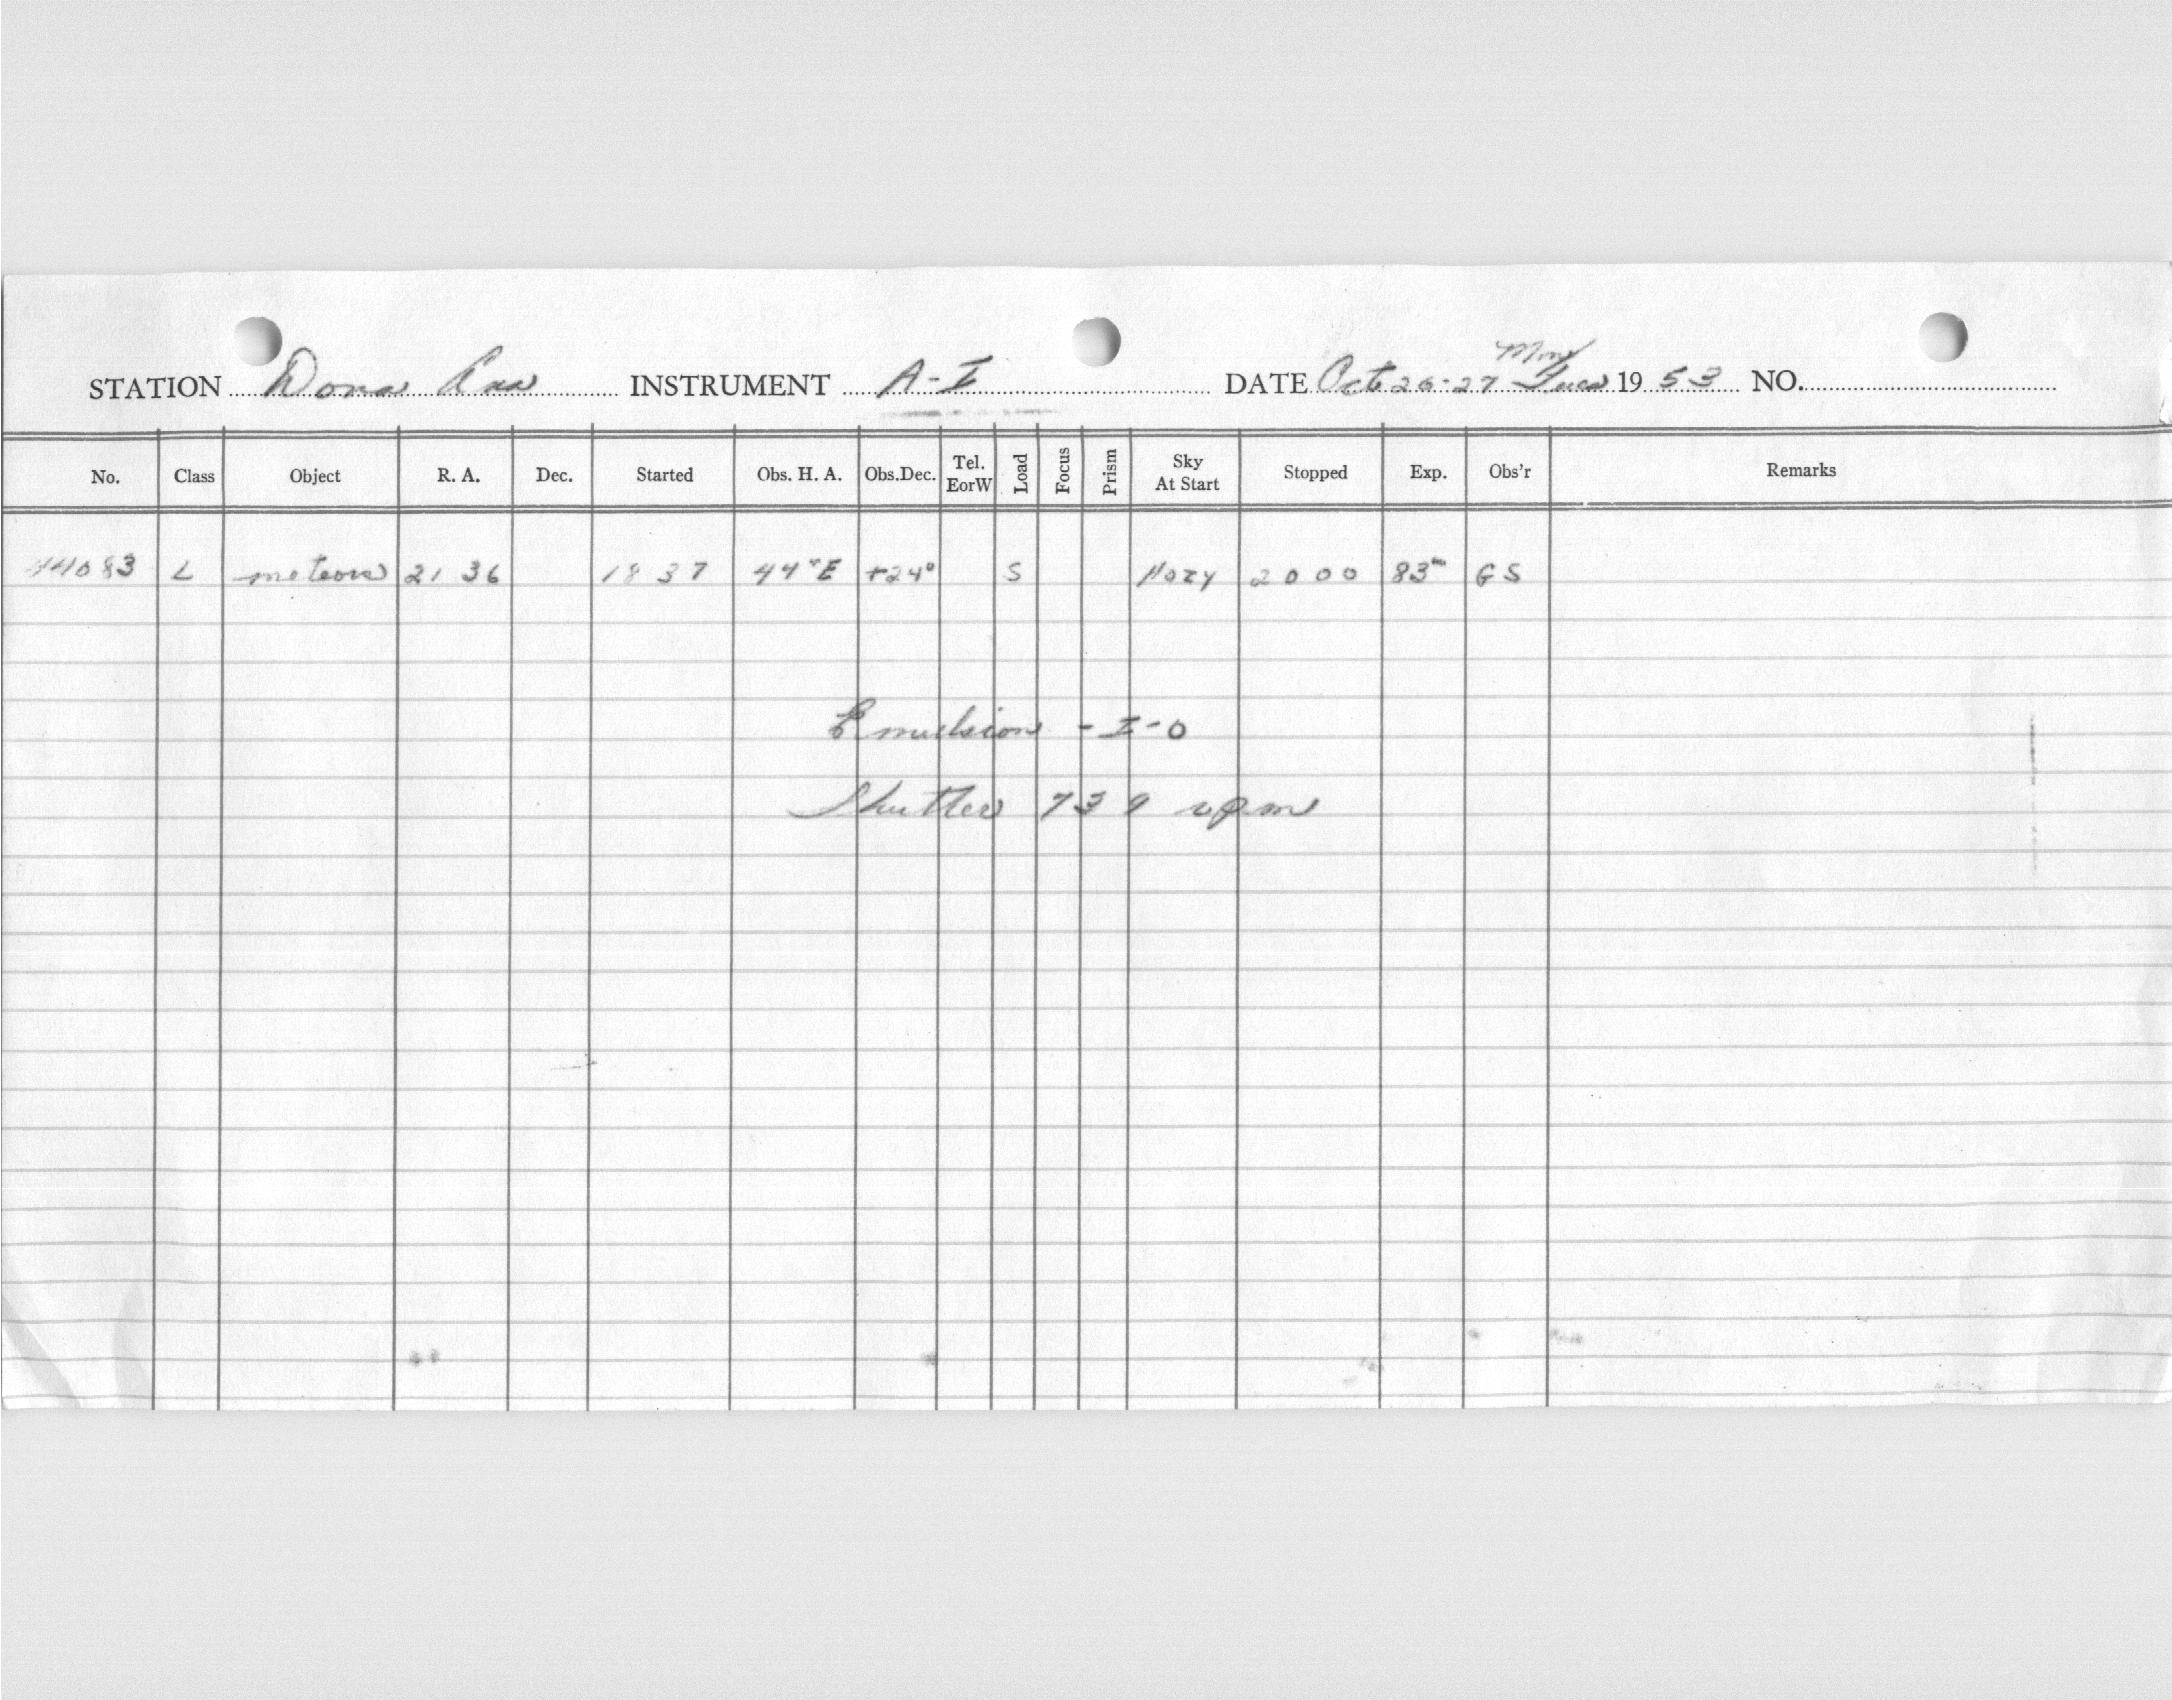 STATION Dona Ana INSTRUMENT A-I DATE Oct 26-27 Mon Tues 19 53 NO.
No. Class Object R. A. Dec. Started Obs. H. A. Obs.Dec. Tel. EorW Load Focus Prism Sky At Start Stopped Exp. Obs'r Remarks
44083 L meteors 21 36 18 37 44°E +24° S Hazy 20 00 83m GS
Emulsion - I-O
Shutter 739 rpm